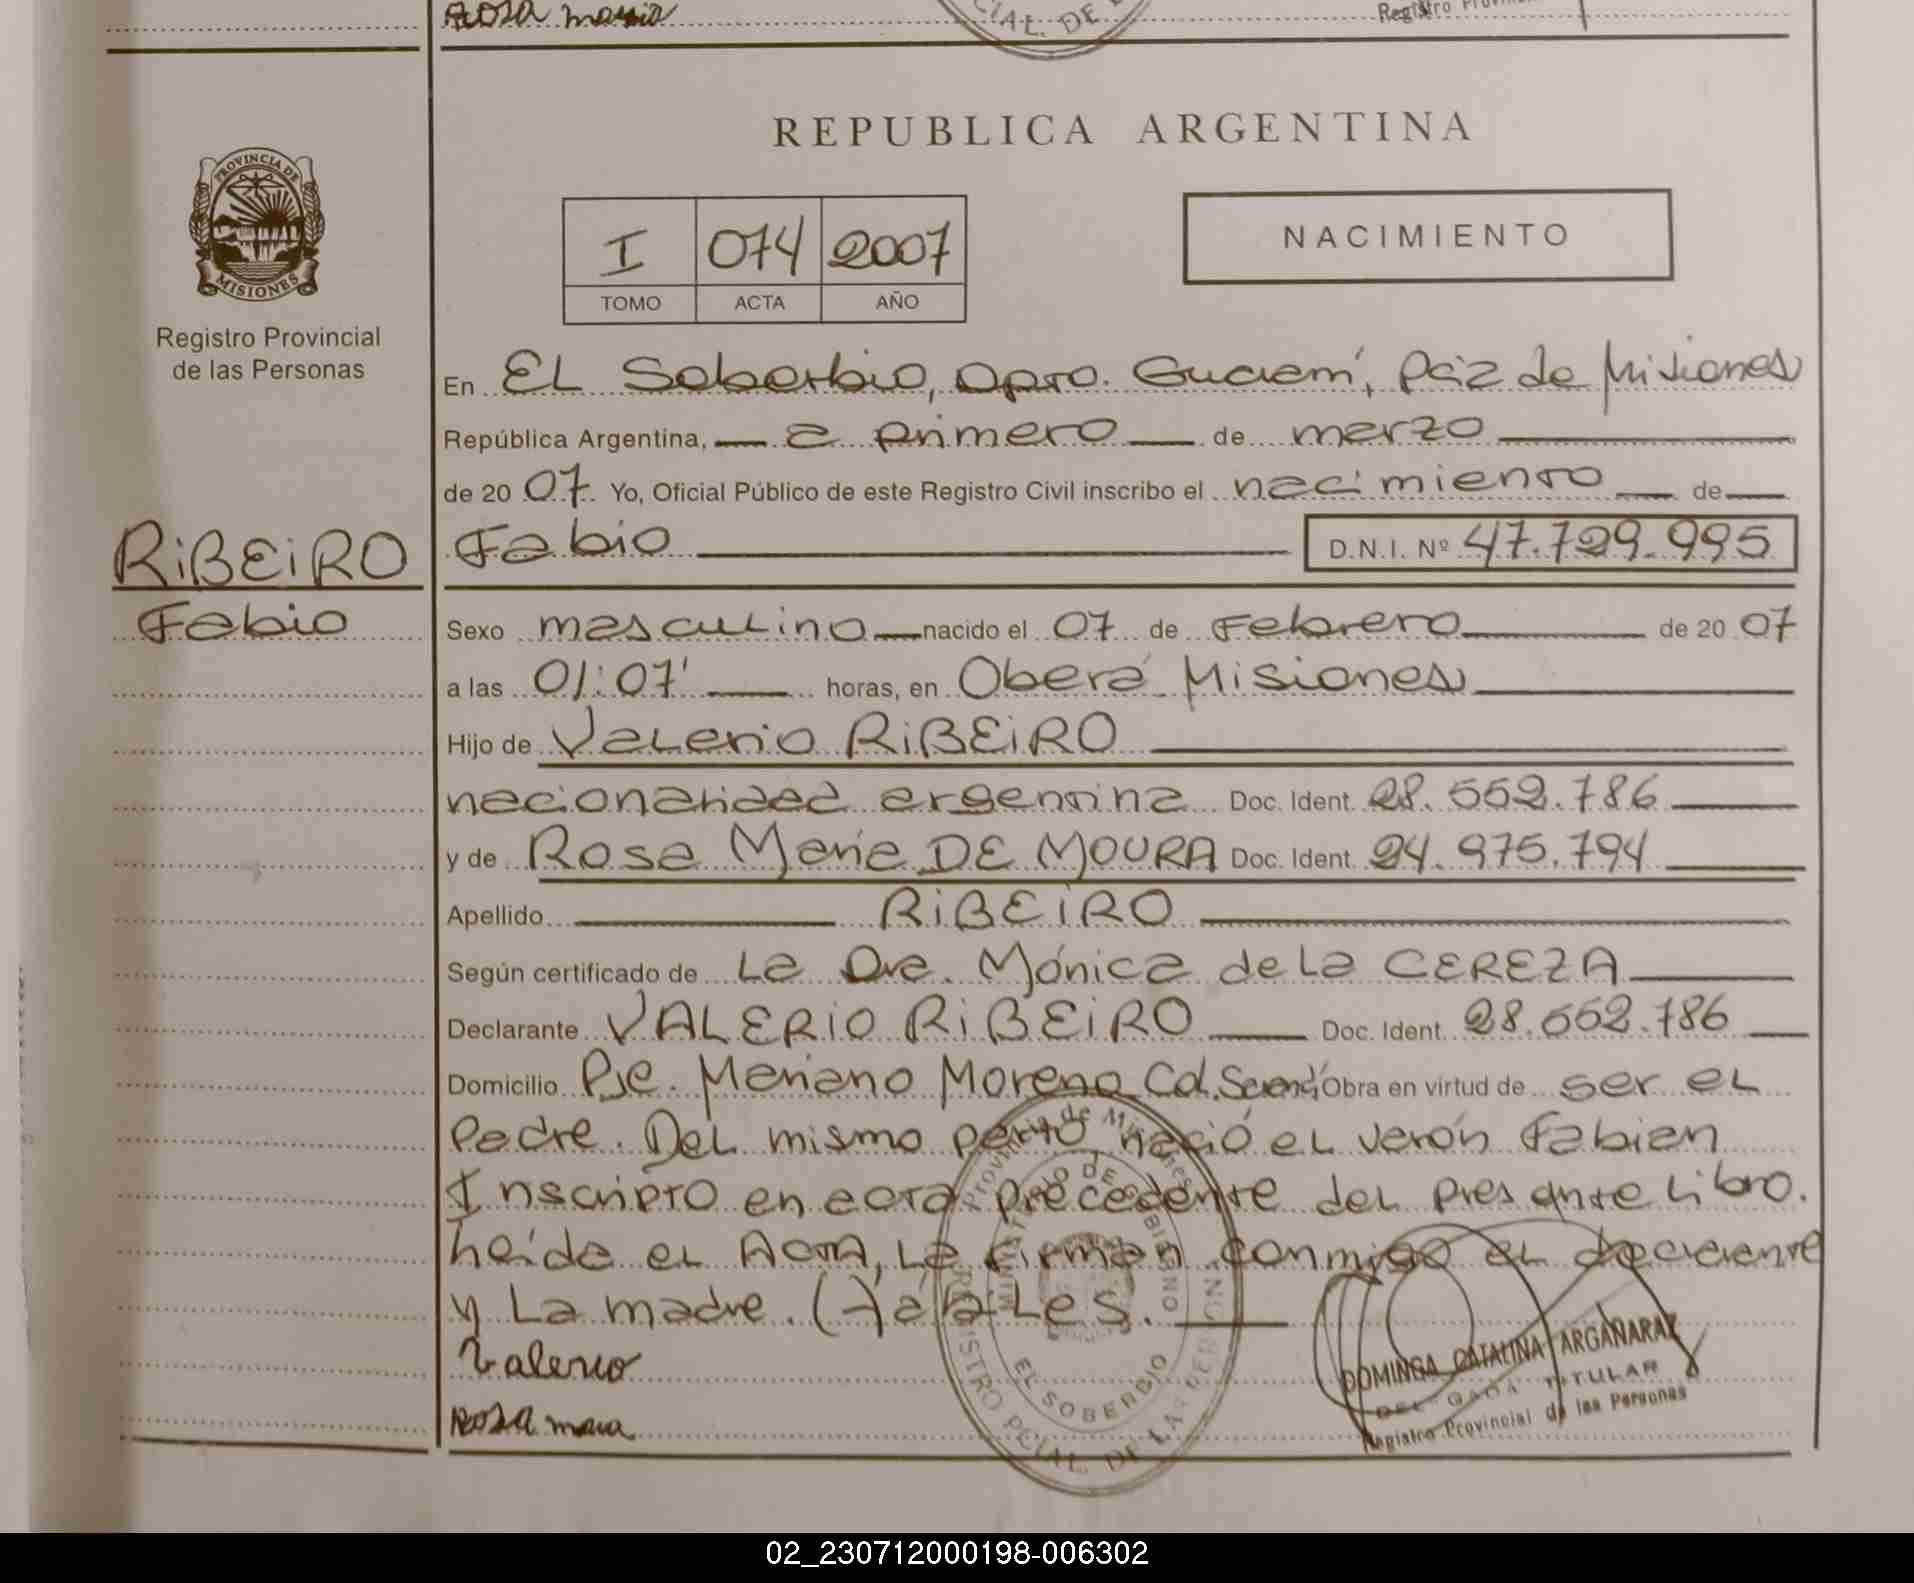 Rosa maria
CIAL. DE L
Registro Provin
PROVINCIA DE
MISIONES
Registro Provincial
de las Personas
REPUBLICA ARGENTINA
I 074 2007
TOMO ACTA AÑO
NACIMIENTO
En EL Soberbio, Dpto. Guaraní, Pcia de Misiones
República Argentina, a primero de marzo
de 20 07 Yo, Oficial Público de este Registro Civil inscribo el nacimiento de
RiBEiRO
Fabio
Fabio D.N.I. Nº 47.729.995
Sexo masculino nacido el 07 de Febrero de 20 07
a las 01:07' horas, en Oberá Misiones
Hijo de Valerio RiBEiRO
nacionalidad argentina Doc. Ident. 28.552.786
y de Rosa María DE MOURA Doc. Ident. 24.975.794
Apellido RiBEiRO
Según certificado de La Dra. Mónica de La CEREZA
Declarante VALERiO RiBEiRO Doc. Ident. 28.552.786
Domicilio Pje. Mariano Moreno Col. Obra en virtud de ser el
Padre. Del mismo parto nació el varón Fabian
Inscripto en acta precedente del presente Libro.
Leída el Acta, La firman conmigo el declarante
y La madre. (-) a b Les.
Valerio
Rosa maria
Provincia de Misiones
MINISTERIO DE GOBIERNO
EL SOBERBIO
REGISTRO PCIAL. DE LAS PERSONAS
DOMINGA CATALINA ARGAÑARAZ
DELEGADA TITULAR
Registro Provincial de las Personas
02_230712000198-006302